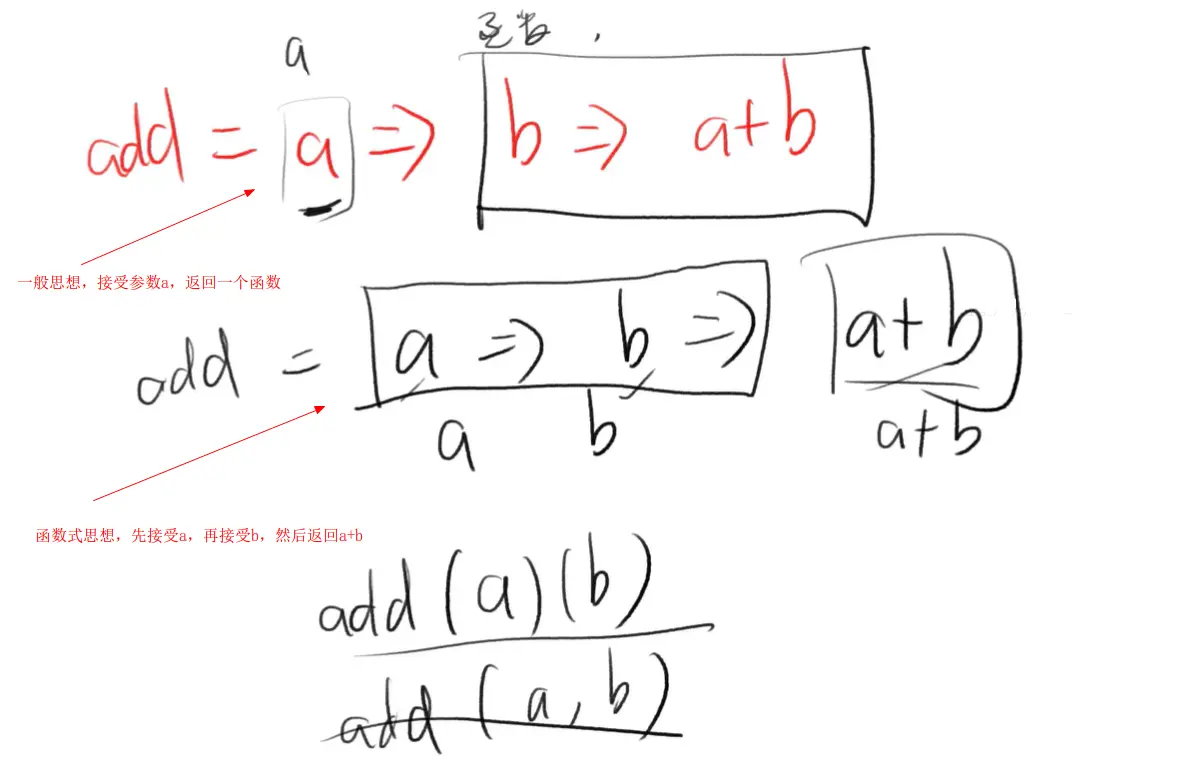 函数,
a
add = a => b => a+b
一般思想，接受参数a，返回一个函数
add = a => b => a+b
a b a+b
函数式思想，先接受a，再接受b，然后返回a+b
add(a)(b)
add(a,b)